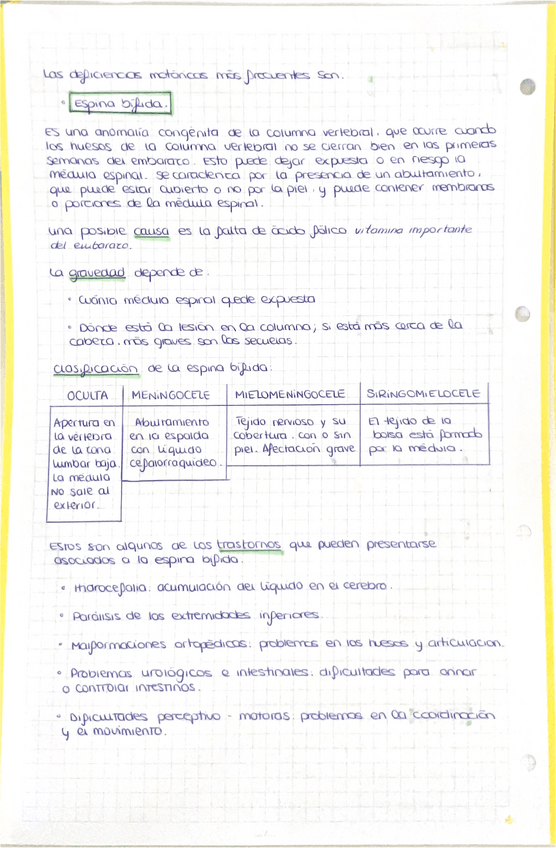 Las deficiencias motóricas más frecuentes son.
• Espina bífida.
Es una anomalía congénita de la columna vertebral, que ocurre cuando
los huesos de la columna vertebral no se cierran bien en las primeras
semanas del embarazo. Esto puede dejar expuesta o en riesgo la
médula espinal. Se caracteriza por la presencia de un abultamiento,
que puede estar cubierto o no por la piel, y puede contener membranas
o porciones de la médula espinal.
Una posible causa es la falta de ácido fólico vitamina importante
del embarazo.
La gravedad depende de:
• Cuánta médula espinal quede expuesta
• Dónde está la lesión en la columna, si está más cerca de la
cabeza, más graves son las secuelas.
Clasificación de la espina bífida:
OCULTA MENINGOCELE MIELOMENINGOCELE SIRINGOMIELOCELE
Apertura en
la vértebra
de la zona
lumbar baja.
La médula
NO sale al
exterior.
Abultamiento
en la espalda
con líquido
cefalorraquídeo.
Tejido nervioso y su
cobertura, con o sin
piel. Afectación grave
El tejido de la
bolsa está formado
por la médula.
Estos son algunos de los trastornos que pueden presentarse
asociados a la espina bífida.
• Hidrocefalia: acumulación del líquido en el cerebro.
• Parálisis de las extremidades inferiores.
• Malformaciones ortopédicas: problemas en los huesos y articulación.
• Problemas urológicos e intestinales: dificultades para orinar
o controlar intestinos.
• Dificultades perceptivo - motoras: problemas en la coordinación
y el movimiento.